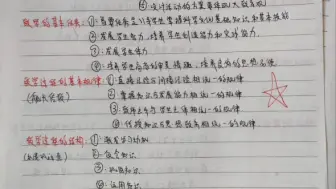 教学的基本任务: ①首要任务是引导学生掌握科学文化基础知识和基本技能
②发展学生智力、培养学生创新能力和实践能力
③发展学生体力
④培养学生高尚审美情趣、培养良好的思想品德
教学过程的基本规律: ①直接经验与间接经验相统一的规律
②掌握知识与发展能力相统一的规律
③教师主导与学生主体相统一的规律
④传授知识与思想教育相统一的规律
教学过程的结构: ①激发学习动机
②领会知识
③巩固知识
④运用知识